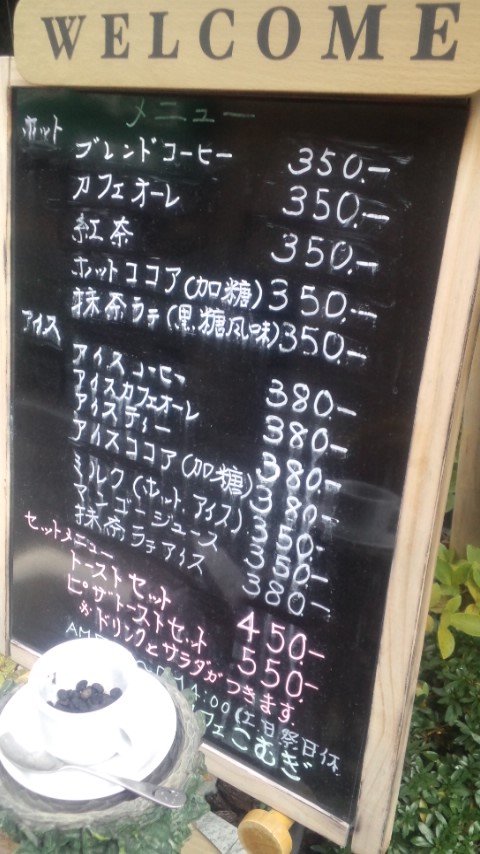 WELCOME
メニュー
ホット
ブレンドコーヒー 350.-
カフェオーレ 350.-
紅茶 350.-
ホットココア(加糖) 350.-
抹茶ラテ(黒糖風味) 350.-
アイス
アイスコーヒー 380.-
アイスカフェオーレ 380.-
アイスティー 380.-
アイスココア(加糖) 380.-
ミルク(ホット.アイス) 350.-
マンゴージュース 350.-
抹茶ラテアイス 380.-
セットメニュー
トーストセット 450.-
ピザトーストセット 550.-
ドリンクとサラダがつきます.
AM 14:00 土日祭日休
フェ こむぎ